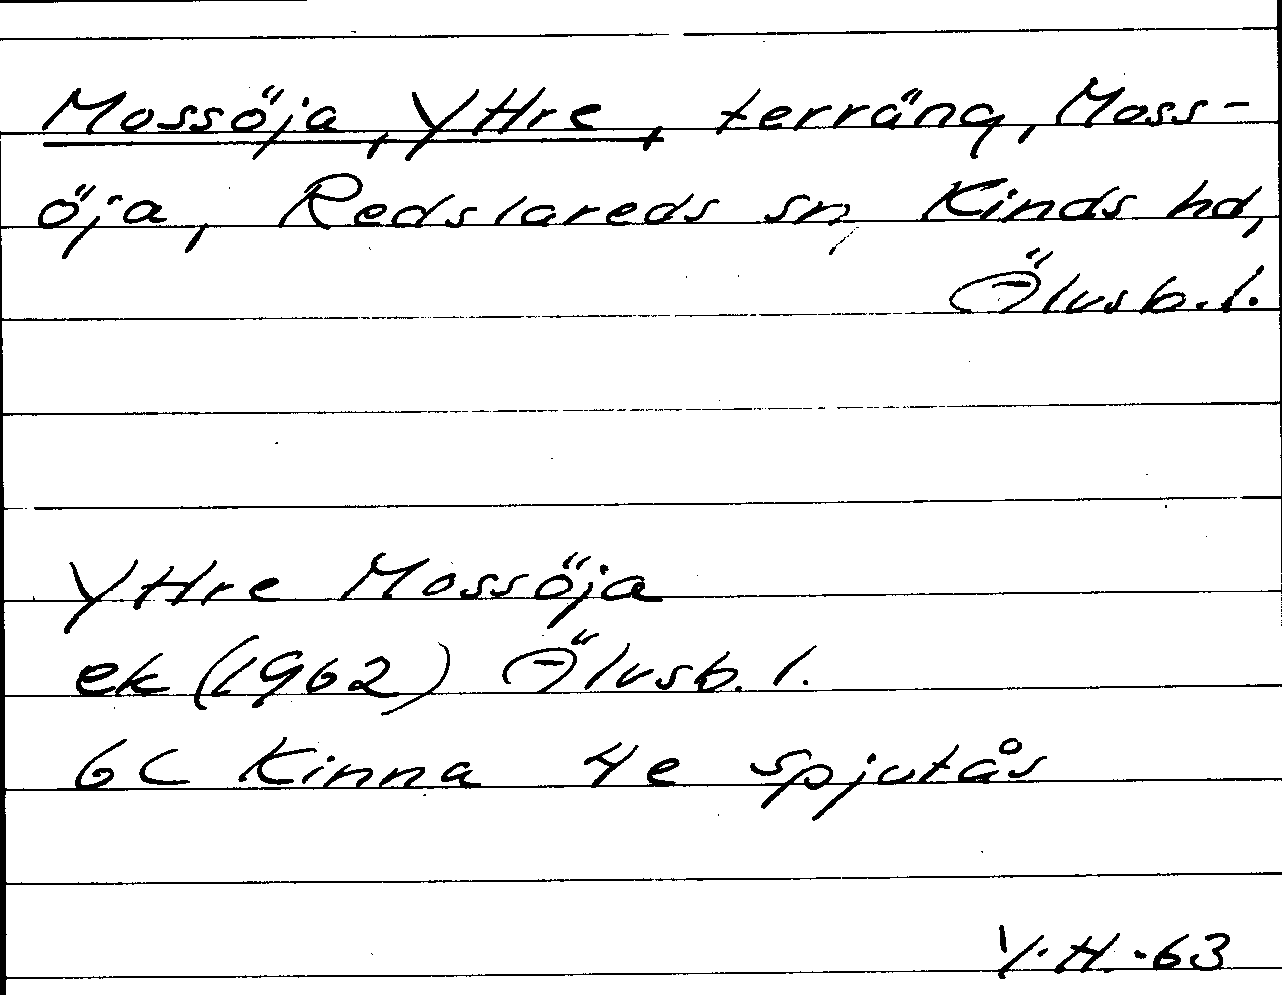 Mossöja, Yttre, terräng, Moss-
öja, Redslareds sn, Kinds hd,
Älvsb. l.
Yttre Mossöja
ek (1962) Älvsb. l.
6C Kinna 4e Spjutås
Y.H. -63